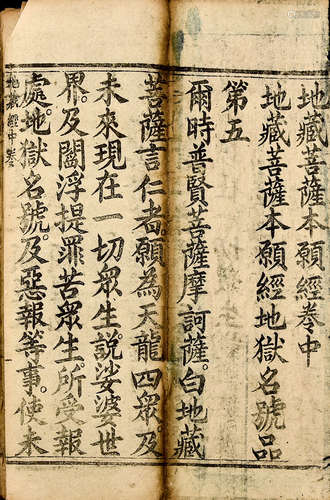 地藏菩薩本願經卷中
地藏菩薩本願經地獄名號品
第五
爾時普賢菩薩摩訶薩。白地藏
菩薩言仁者。願為天龍四眾。及
未來現在一切眾生。說娑婆世
界。及閻浮提罪苦眾生。所受報
處。地獄名號。及惡報等事。使未
地藏經中卷